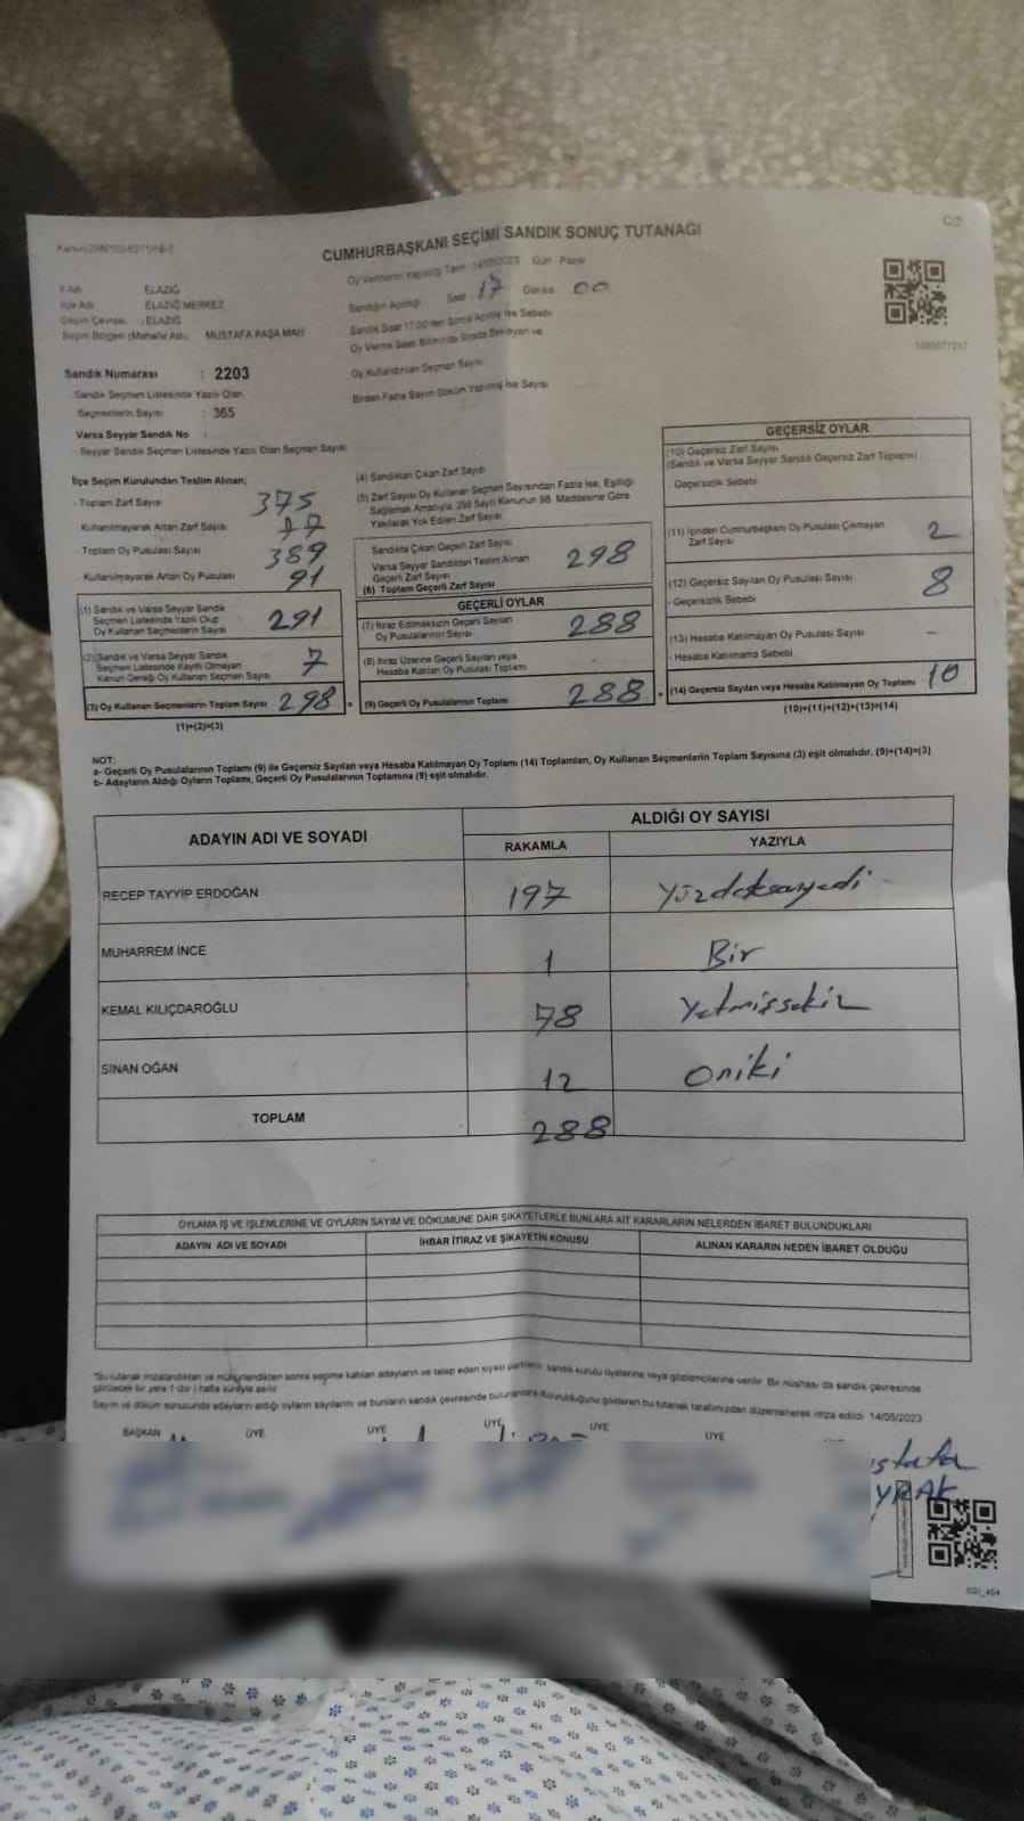 CUMHURBAŞKANI SEÇİMİ SANDIK SONUÇ TUTANAĞI
C/2
Oy Vermenin Yapıldığı Tarih : 14/05/2023 Gün : Pazar
İl Adı : ELAZIĞ
İlçe Adı : ELAZIĞ MERKEZ
Seçim Çevresi : ELAZIĞ
Seçim Bölgesi (Mahalle Adı) : MUSTAFA PAŞA MAH
Sandığın Açıldığı Saat : 17 Dakika : 00
Sandık Saat 17:00'den Sonra Açılmış İse Sebebi
Oy Verme Saati Bitiminde Sırada Bekleyen ve
Oy Kullandırılan Seçmen Sayısı
Birden Fazla Sayım Döküm Yapılmış İse Sayısı
Sandık Numarası : 2203
Sandık Seçmen Listesinde Yazılı Olan
Seçmenlerin Sayısı : 365
Varsa Seyyar Sandık No :
Seyyar Sandık Seçmen Listesinde Yazılı Olan Seçmen Sayısı
İlçe Seçim Kurulundan Teslim Alınan;
- Toplam Zarf Sayısı 375
Kullanılmayarak Artan Zarf Sayısı 77
- Toplam Oy Pusulası Sayısı 389
Kullanılmayarak Artan Oy Pusulası 91
(1) Sandık ve Varsa Seyyar Sandık
Seçmen Listesinde Yazılı Olup
Oy Kullanan Seçmenlerin Sayısı 291
(2) Sandık ve Varsa Seyyar Sandık
Seçmen Listesinde Kayıtlı Olmayan
Kanun Gereği Oy Kullanan Seçmen Sayısı 7
(3) Oy Kullanan Seçmenlerin Toplam Sayısı 298
(1)+(2)=(3)
(4) Sandıktan Çıkan Zarf Sayısı
(5) Zarf Sayısı Oy Kullanan Seçmen Sayısından Fazla İse, Eşitliği
Sağlamak Amacıyla, 298 Sayılı Kanunun 98. Maddesine Göre
Yakılarak Yok Edilen Zarf Sayısı
Sandıkta Çıkan Geçerli Zarf Sayısı
Varsa Seyyar Sandıktan Teslim Alınan
Geçerli Zarf Sayısı
(6) Toplam Geçerli Zarf Sayısı 298
GEÇERLİ OYLAR
(7) İtiraz Edilmeksizin Geçerli Sayılan
Oy Pusulalarının Sayısı 288
(8) İtiraz Üzerine Geçerli Sayılan veya
Hesaba Katılan Oy Pusulası Toplamı
(9) Geçerli Oy Pusulalarının Toplamı 288
GEÇERSİZ OYLAR
(10) Geçersiz Zarf Sayısı
(Sandık ve Varsa Seyyar Sandık Geçersiz Zarf Toplamı)
Geçersizlik Sebebi
(11) İçinden Cumhurbaşkanı Oy Pusulası Çıkmayan
Zarf Sayısı 2
(12) Geçersiz Sayılan Oy Pusulası Sayısı 8
- Geçersizlik Sebebi
(13) Hesaba Katılmayan Oy Pusulası Sayısı -
- Hesaba Katılmama Sebebi
(14) Geçersiz Sayılan veya Hesaba Katılmayan Oy Toplamı 10
(10)+(11)+(12)+(13)=(14)
NOT:
a- Geçerli Oy Pusulalarının Toplamı (9) ile Geçersiz Sayılan veya Hesaba Katılmayan Oy Toplamı (14) Toplamları, Oy Kullanan Seçmenlerin Toplam Sayısına (3) eşit olmalıdır. (9)+(14)=(3)
b- Adayların Aldığı Oyların Toplamı, Geçerli Oy Pusulalarının Toplamına (9) eşit olmalıdır.
ADAYIN ADI VE SOYADI
ALDIĞI OY SAYISI
RAKAMLA YAZIYLA
RECEP TAYYİP ERDOĞAN 197 Yüzdoksanyedi
MUHARREM İNCE 1 Bir
KEMAL KILIÇDAROĞLU 78 Yetmişsekiz
SİNAN OĞAN 12 Oniki
TOPLAM 288
OYLAMA İŞ VE İŞLEMLERİNE VE OYLARIN SAYIM VE DÖKÜMÜNE DAİR ŞİKAYETLERLE BUNLARA AİT KARARLARIN NELERDEN İBARET BULUNDUKLARI
ADAYIN ADI VE SOYADI İHBAR İTİRAZ VE ŞİKAYETİN KONUSU ALINAN KARARIN NEDEN İBARET OLDUĞU
BAŞKAN ÜYE ÜYE ÜYE ÜYE ÜYE